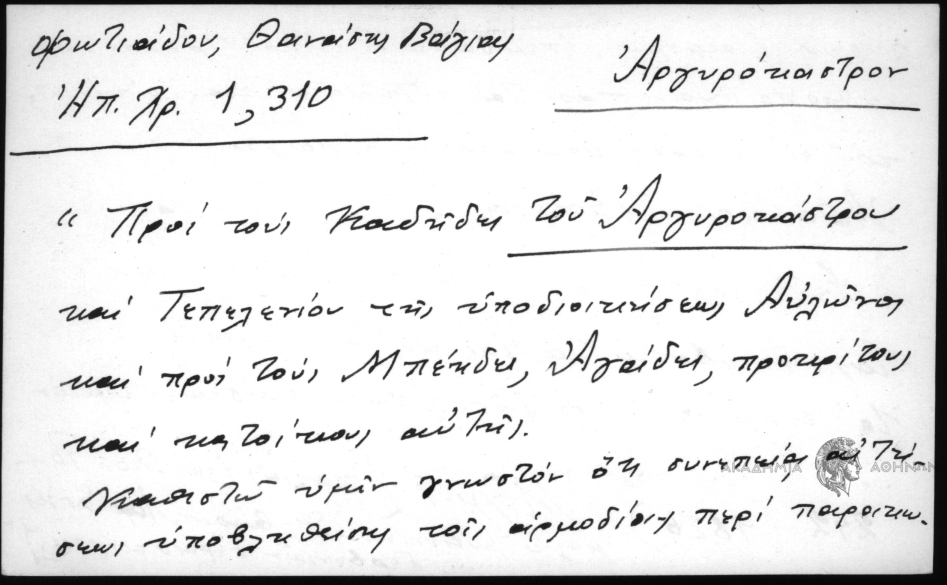 Φωτιάδου, Θανάσης Βάγιας
Ἠπ. Χρ. 1, 310
Ἀργυρόκαστρον
“ Πρός τούς Καδῆδες τοῦ Ἀργυροκάστρου
καί Τεπελενίου τῆς ὑποδιοικήσεως Αὐλῶνος
καί πρός τούς Μπέηδες, Ἀγάδες, προκρίτους
καί κατοίκους αὐτῆς.
Καθιστῶ ὑμῖν γνωστόν ὅτι συνεπείᾳ αἰτή-
σεως ὑποβληθείσης τοῖς ἁρμοδίοις περί παραιτή-
ΑΚΑΔΗΜΙΑ ΑΘΗΝΩΝ